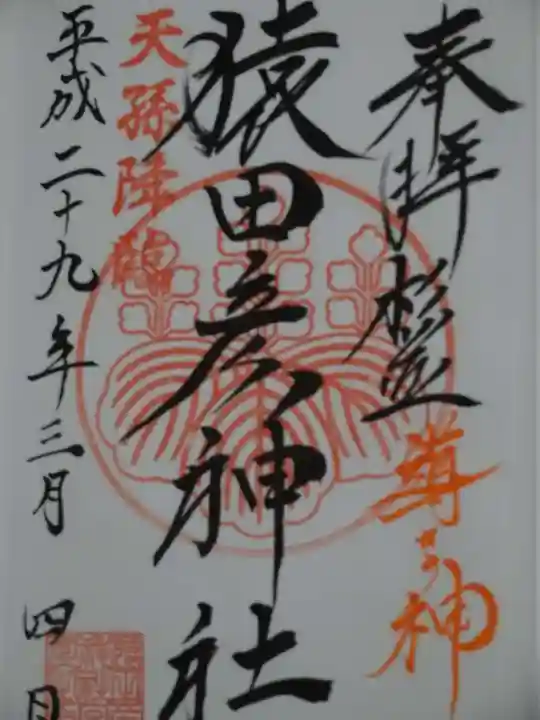 奉拝 杉並 導 神
猿田彦神社
天孫降臨
平成二十九年三月 四日